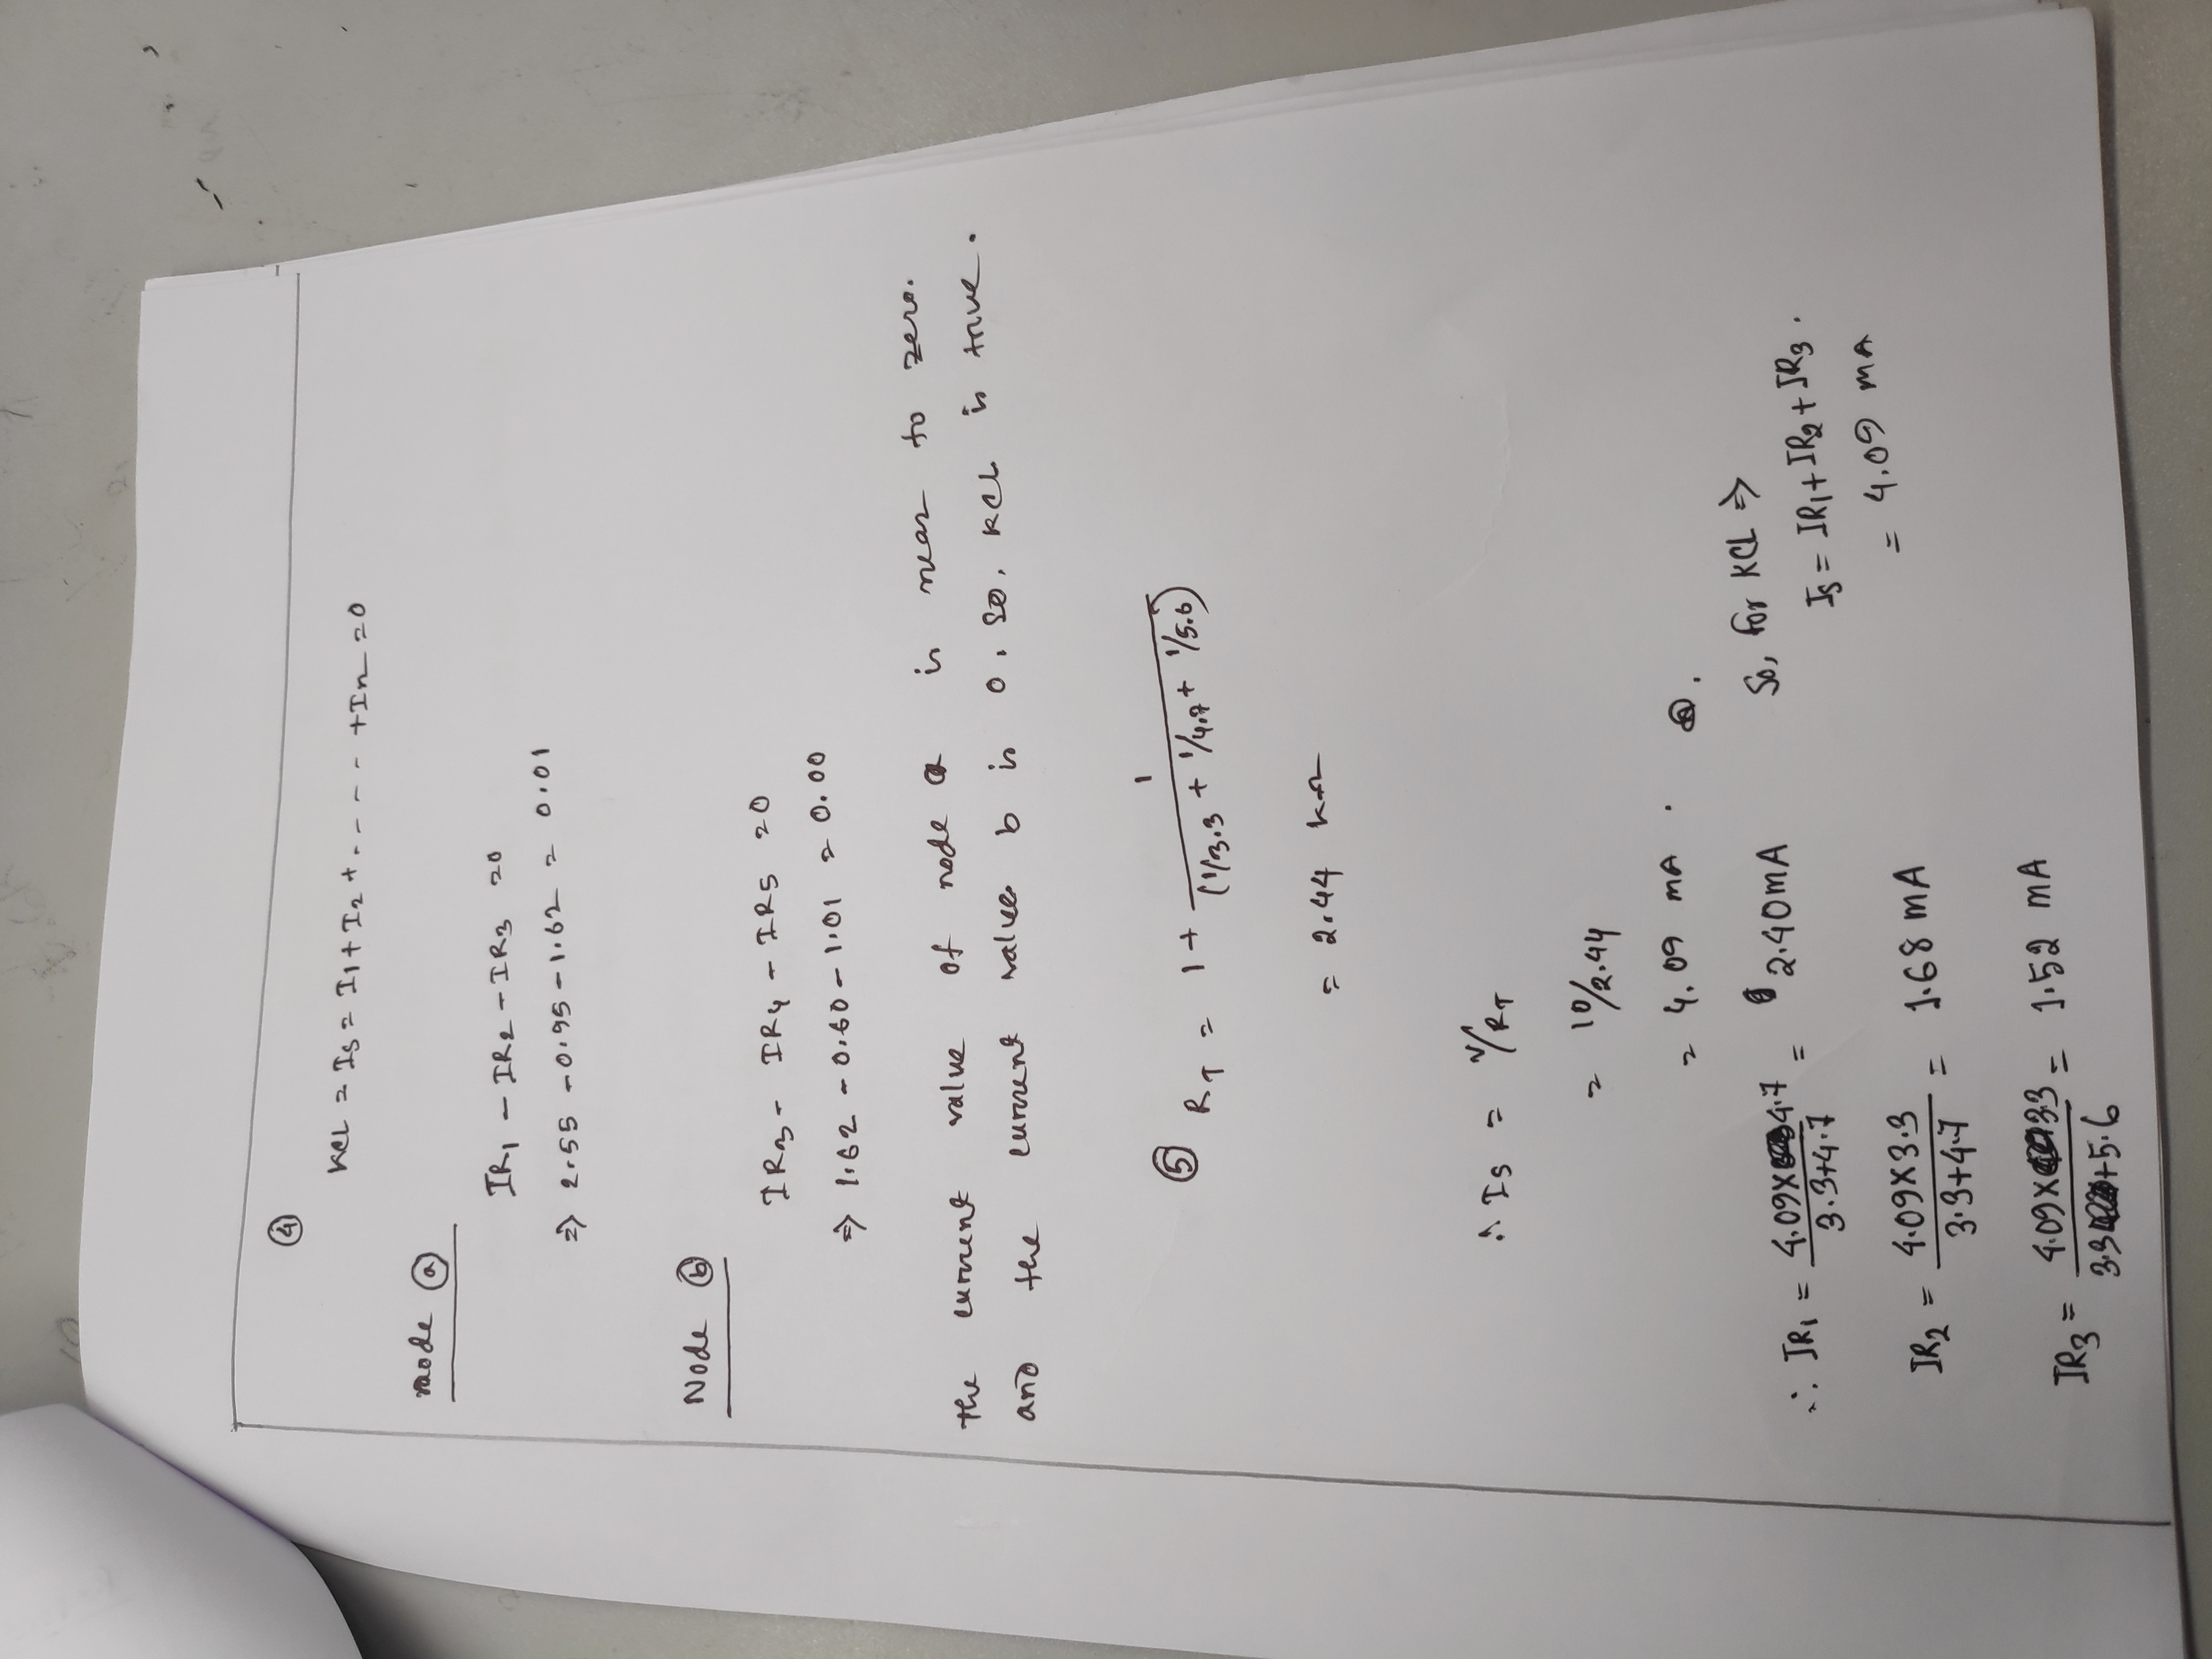 ④
KCL = Is = I1 + I2 + - - - - + In = 0
node ⓐ
IR1 - IR2 - IR3 = 0
⇒ 2.55 - 0.95 - 1.62 = 0.01
Node ⓑ
IR3 - IR4 - IR5 = 0
⇒ 1.62 - 0.60 - 1.01 = 0.00
The current value of node a is near to zero.
and the current value b is 0. So, KCL is true.
⑤ RT = 1 + 1/(1/3.3 + 1/4.7 + 1/5.6)
= 2.44 kΩ
∴ Is = V/RT
= 10/2.44
= 4.09 mA .
∴ IR1 = 4.09×4.7/3.3+4.7 = 2.40mA
IR2 = 4.09×3.3/3.3+4.7 = 1.68 mA
IR3 = 4.09×3.3/3.3+5.6 = 1.52 mA
So, for KCL ⇒
Is = IR1 + IR2 + IR3 .
= 4.09 mA